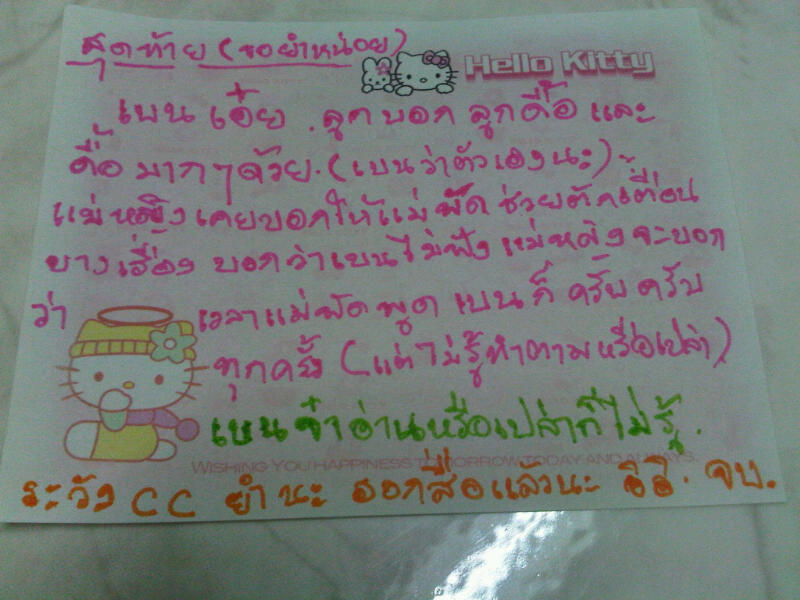 สุดท้าย (ขอยำหน่อย)
Hello Kitty
เบนเอ๋ย. ลูกบอกลูกดื้อและ
ดื้อมากๆด้วย. (เบนว่าตัวเองนะ)
แม่หญิงเคยบอกให้แม่พัดช่วยตักเตื่อน
บางเรื่อง บอกว่าเบนไม่ฟัง แม่หญิงจะบอก
ว่า เวลาแม่พัดพูด เบนก็ ครั้บครับ
ทุกครั้ง (แต่ไม่รู้ทำตามหรือเปล่า)
เบนจ๋าอ่านหรือเปล่าก็ไม่รู้.
WISHING YOU HAPPINESS TOMORROW, TODAY AND ALWAYS.
ระวัง CC ยำนะ ออกสื่อแล้วนะ อิอิ. จบ.